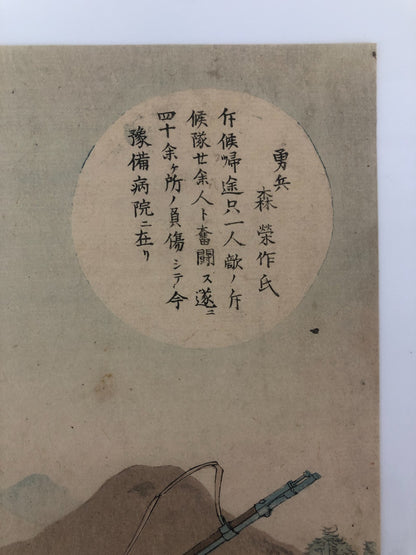 勇兵
森榮作氏
斥候帰途只一人敵ノ斥
候隊廿余人ト奮闘ス遂ニ
四十余ヶ所ノ負傷シテ今
豫備病院ニ在リ